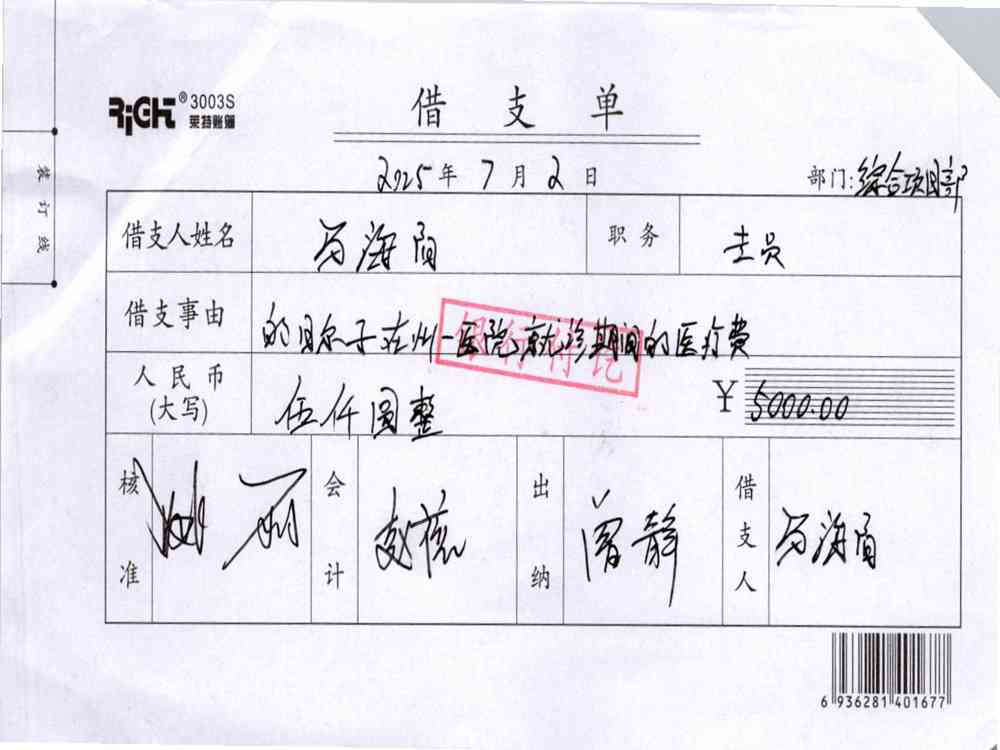 RiGHT® 3003S
莱特账簿
借支单
2025年7月2日
部门:综合项目部
装订线
借支人姓名 马海
职务 员
借支事由 的日尔子在州一医院就诊期间的医疗费
银行付讫
人民币(大写) 伍仟圆整 ¥5000.00
核准
会计 赵
出纳 曾静
借支人 马海
6 936281 401677